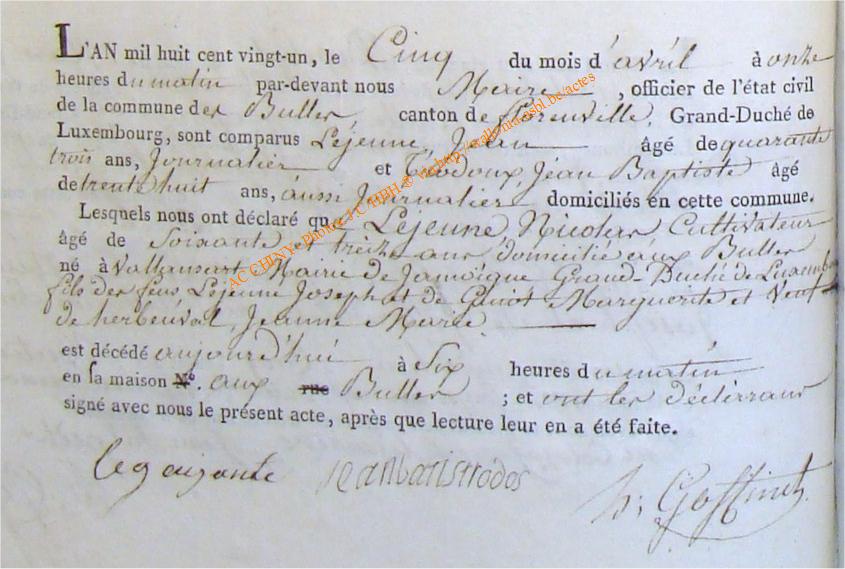 L'AN mil huit cent vingt-un, le Cinq du mois d'avril à onze
heures du matin par-devant nous Maire, officier de l'état civil
de la commune des Bulles, canton de florenville, Grand-Duché de
Luxembourg, sont comparus Lejeune, Jean âgé de quarante
trois ans, Journalier et Téodoux, Jéan Baptiste âgé
de trente huit ans, aussi Journalier domiciliés en cette commune.
Lesquels nous ont déclaré que Lejeune Nicolas Cultivateur
âgé de Soixante et treize ans domicilié aux Bulles
né à Vallansart Mairie de Jamoigne Grand-Duché de Luxembourg
fils des feus Lejeune Joseph et de Guiot Marguerite et Veuf
de herbeuval, Jeanne Marie.
est décédé aujourd'hui à Six heures du matin
en sa maison N°. aux rue Bulles ; et ont les déclarans
signé avec nous le présent acte, après que lecture leur en a été faite.
jeanbatistrodos
h; Goffinet
AC CHINY - photos FC HBH © vtchapp.wallonia.asbl.be/actes